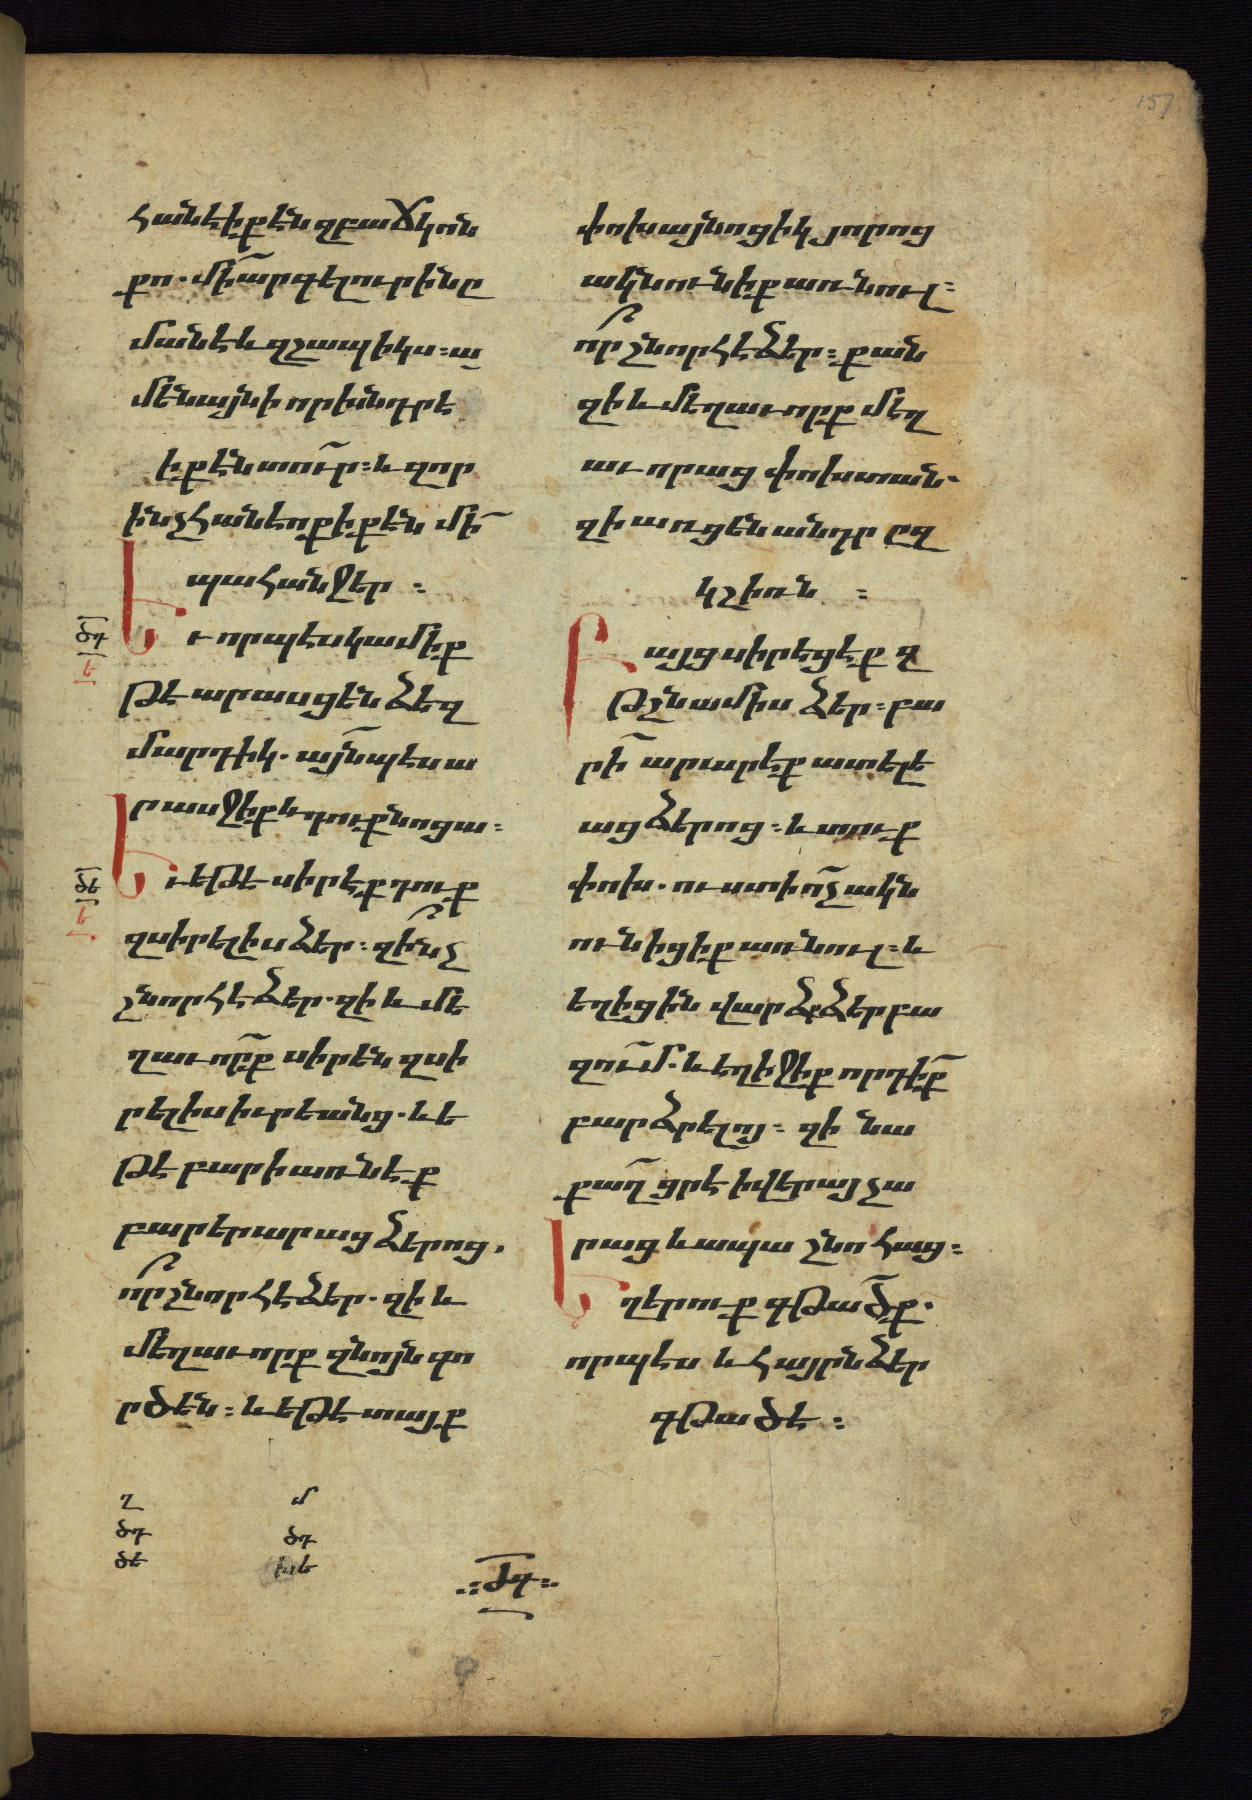 157
հանէիքէնզբաճկոն
քո. մի՛արգելուրինը
մանէևզշապիկս։ա
մենայնիորխնդրէ
իքէնտո՛ւր։ևզոր
ինչհանեոքիքէն մի՛
պահանջեր։
ԵՒորպէսկամիք
թէարասցենձեզ
մարդիկ. այնպէսա
րասջիքևդուքնոցա։
Եւեթէսիրէքդուք
զսիրելիսձեր։զի՛նչ
շնորհէձեր.զիևմե
ղաւորքսիրենզսի
րելիսիւրեանց.ևե
թէբարիառնէք
բարերարացձերոց,
ո՛րշնորհէձեր.զիև
մեղաւորքզնոյնգո
րծեն։ևեթէտայք
փոխայնոցիկյորոց
ակնունիքառնուլ։
ո՛րշնորհէձեր։քան
զիևմեղաւորքմեղ
աւորացփոխտան.
զիառցենանդրըզ
կշիռն։
Բայցսիրեցէքզ
թշնամիսձեր։բա
րի՛արարէքատելե
ացձերոց։ևտուք
փոխ.ուստիո՛չակն
ունիցիքառնուլ։և
եղիցինվարձքձերբա
զում.ևեղիջիքորդիք
բարձրելոյ։զինա
քաղցրէիվերայչա
րացևապաշնոհաց։
Եղերուքգթածք.
որպէսևհայրնձեր
գթածէ։
ծդ
ե
ծե
ե
ղ մ
ծդ ծդ
ծե խե